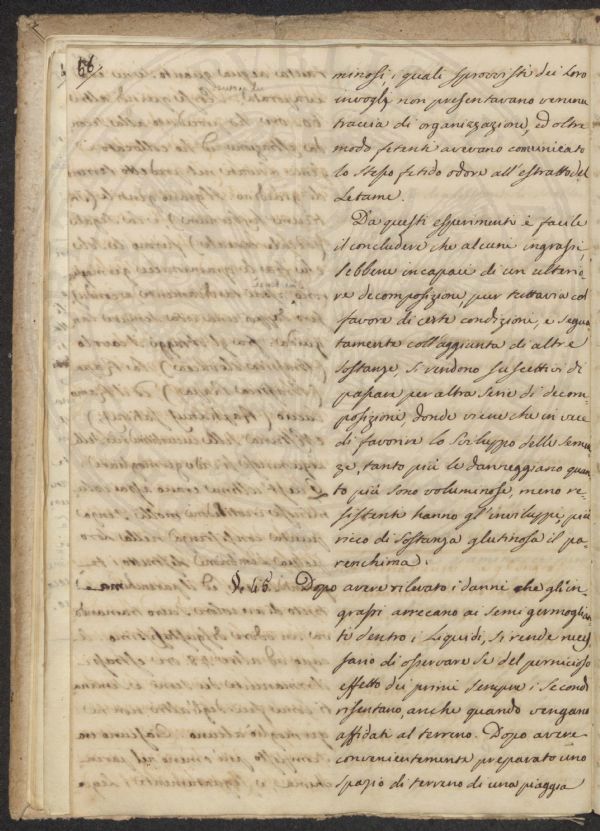 56
minosi, i quali sprovvisti dei loro
invogli non presentavano veruna
traccia di organizzazione, ed oltre
modo fetenti avevano comunicato
lo stesso fetido odore all'estratto del
Letame.
Da questi esperimenti è facile
il concludere che alcuni ingrassi,
sebbene incapaci di un ulterio-
re decomposizione, pur tuttavia col
favore di certe condizioni, e segna
tamente coll'aggiunta di altre
sostanze, si rendono suscettivi di
passare per altra serie di decom-
posizione, donde viene che in vece
di favorire lo sviluppo delle semen
ze, tanto più le danneggiano quan
to più sono voluminose, meno re-
sistenti hanno gl'inviluppi, più
ricco di sostanza glutinosa il pa-
renchima.
§. 46. Dopo avere rilevato i danni che gl'in
grassi arrecano ai semi germoglian
te dentro i Liquidi, si rende neces
sario di osservare se del pernicioso
effetto dei primi sempre i secondi
risentano, anche quando vengano
affidati al terreno. Dopo avere
convenientemente preparato uno
spazio di terreno di una piaggia